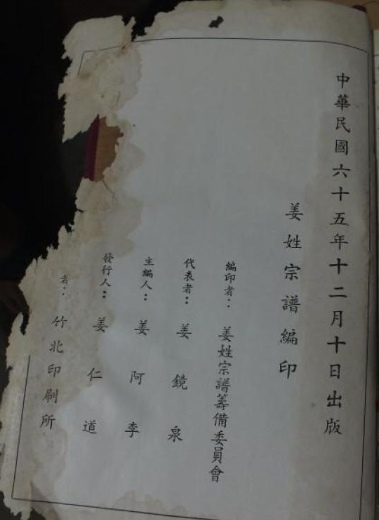 中華民國六十五年十二月十日出版
姜姓宗譜編印
編印者：姜姓宗譜籌備委員會
代表者：姜鏡泉
主編人：姜阿李
發行人：姜仁道
者：竹北印刷所